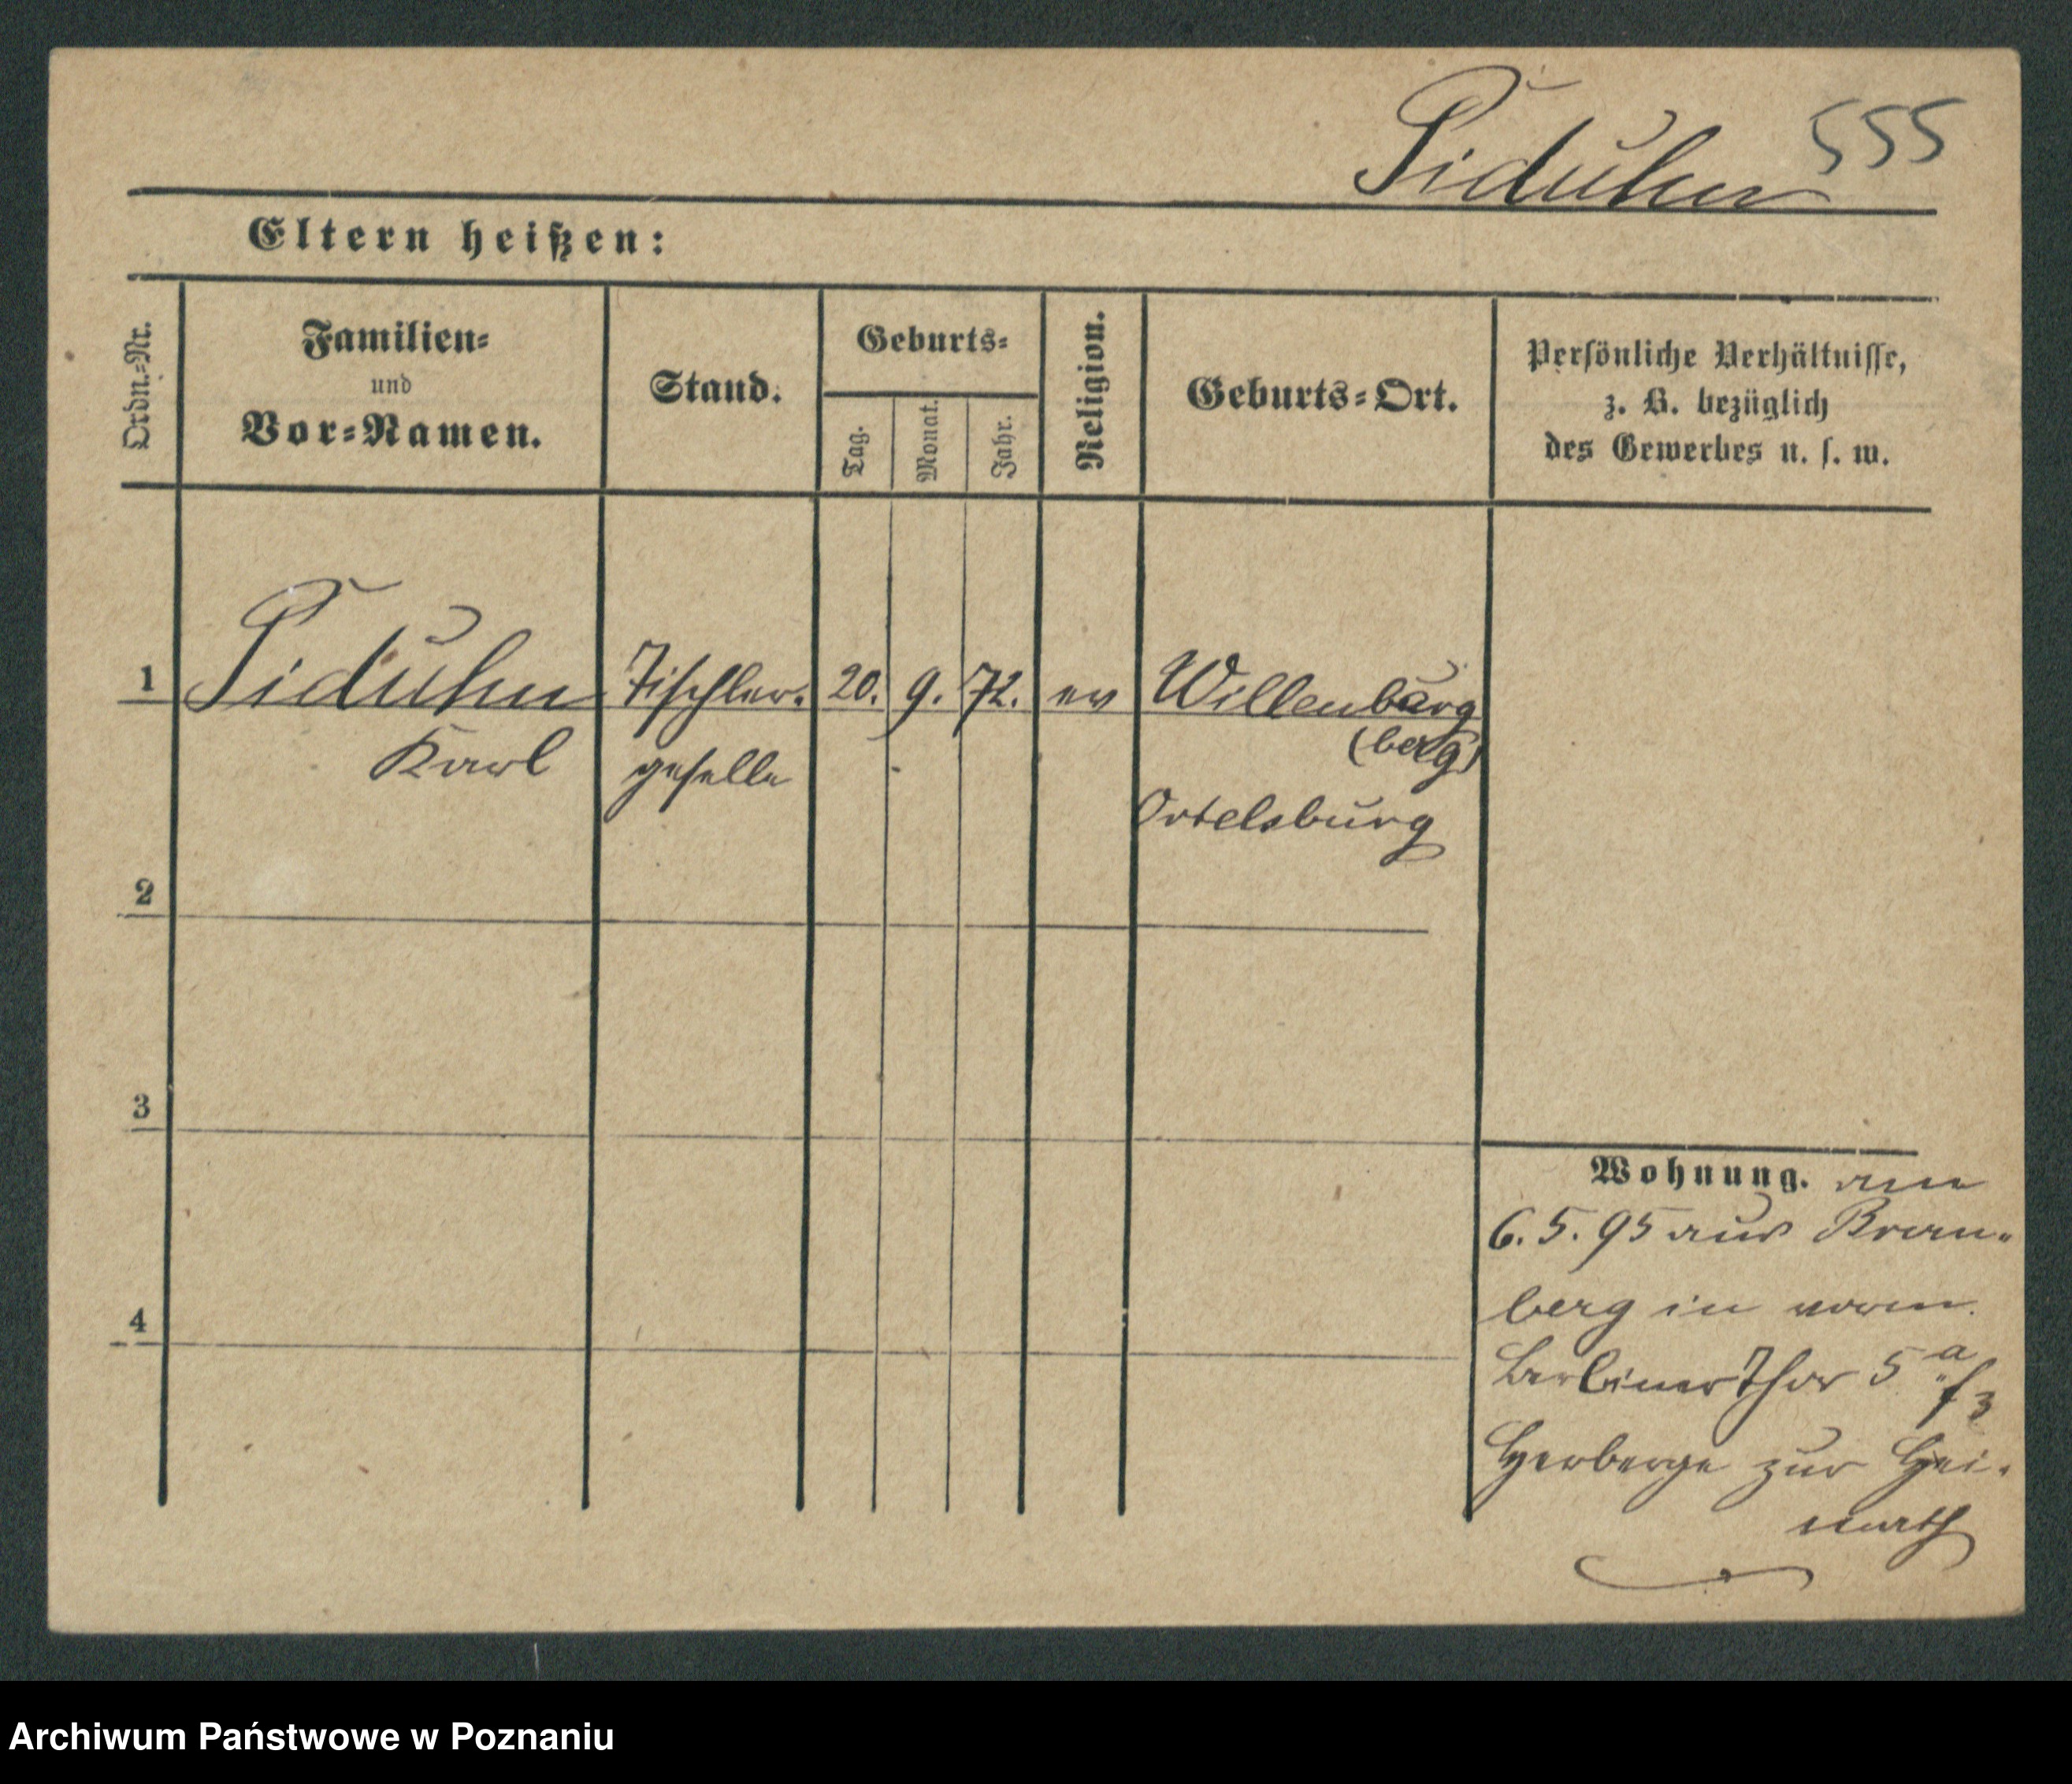 555
Piduhn
Eltern heißen:
Ordn.=Nr.
Familien=
und
Vor=Namen.
Stand.
Geburts=
Tag.
Monat.
Jahr.
Religion.
Geburts=Ort.
Persönliche Verhältnisse,
z. B. bezüglich
des Gewerbes u. s. w.
1
Piduhn
Karl
Tischler.
geselle
20. 9. 72.
ev
Willenburg
(berg)
Ortelsburg
2
3
4
Wohnung. am
6. 5. 95 aus
berg in
Berliner Thor 5 a
Herberge zur Hei-
math
Archiwum Państwowe w Poznaniu